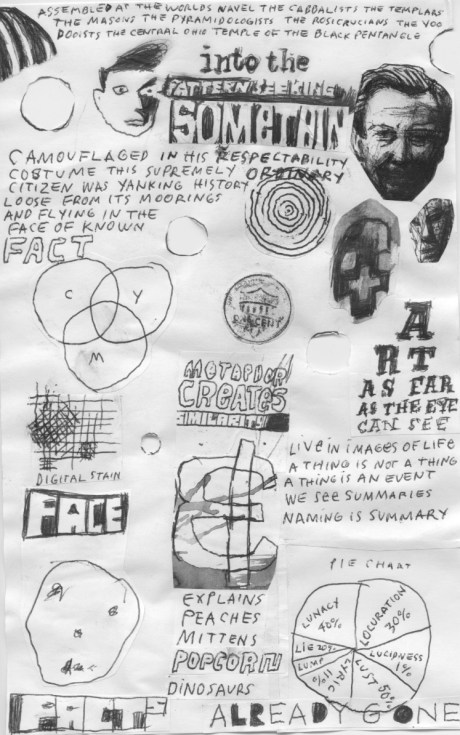 ASSEMBLED AT THE WORLDS NAVEL THE CABBALISTS THE TEMPLARS
THE MASONS THE PYRAMIDOLOGISTS THE ROSICRUCIANS THE VOO
DOOISTS THE CENTRAL OHIO TEMPLE OF THE BLACK PENTANGLE
into the
PATTERN SEEKING
SOMETHIN
CAMOUFLAGED IN HIS RESPECTABILITY
COSTUME THIS SUPREMELY ORDINARY
CITIZEN WAS YANKING HISTORY
LOOSE FROM ITS MOORINGS
AND FLYING IN THE
FACE OF KNOWN
FACT
C Y
M
CENT
A
RT
AS FAR
AS THE EYE
CAN SEE
METAPHOR
CREATES
SIMILARITY
DIGITAL STAIN
FACE
LIVE IN IMAGES OF LIFE
A THING IS NOT A THING
A THING IS AN EVENT
WE SEE SUMMARIES
NAMING IS SUMMARY
EXPLAINS
PEACHES
MITTENS
POPCORN
DINOSAURS
PIE CHART
LUNACY
40%
LOCURATION
30%
LIE 20%
LUCIDNESS
1%
LUMP
LYRIC
11%
LUST 50%
ALREADY GONE